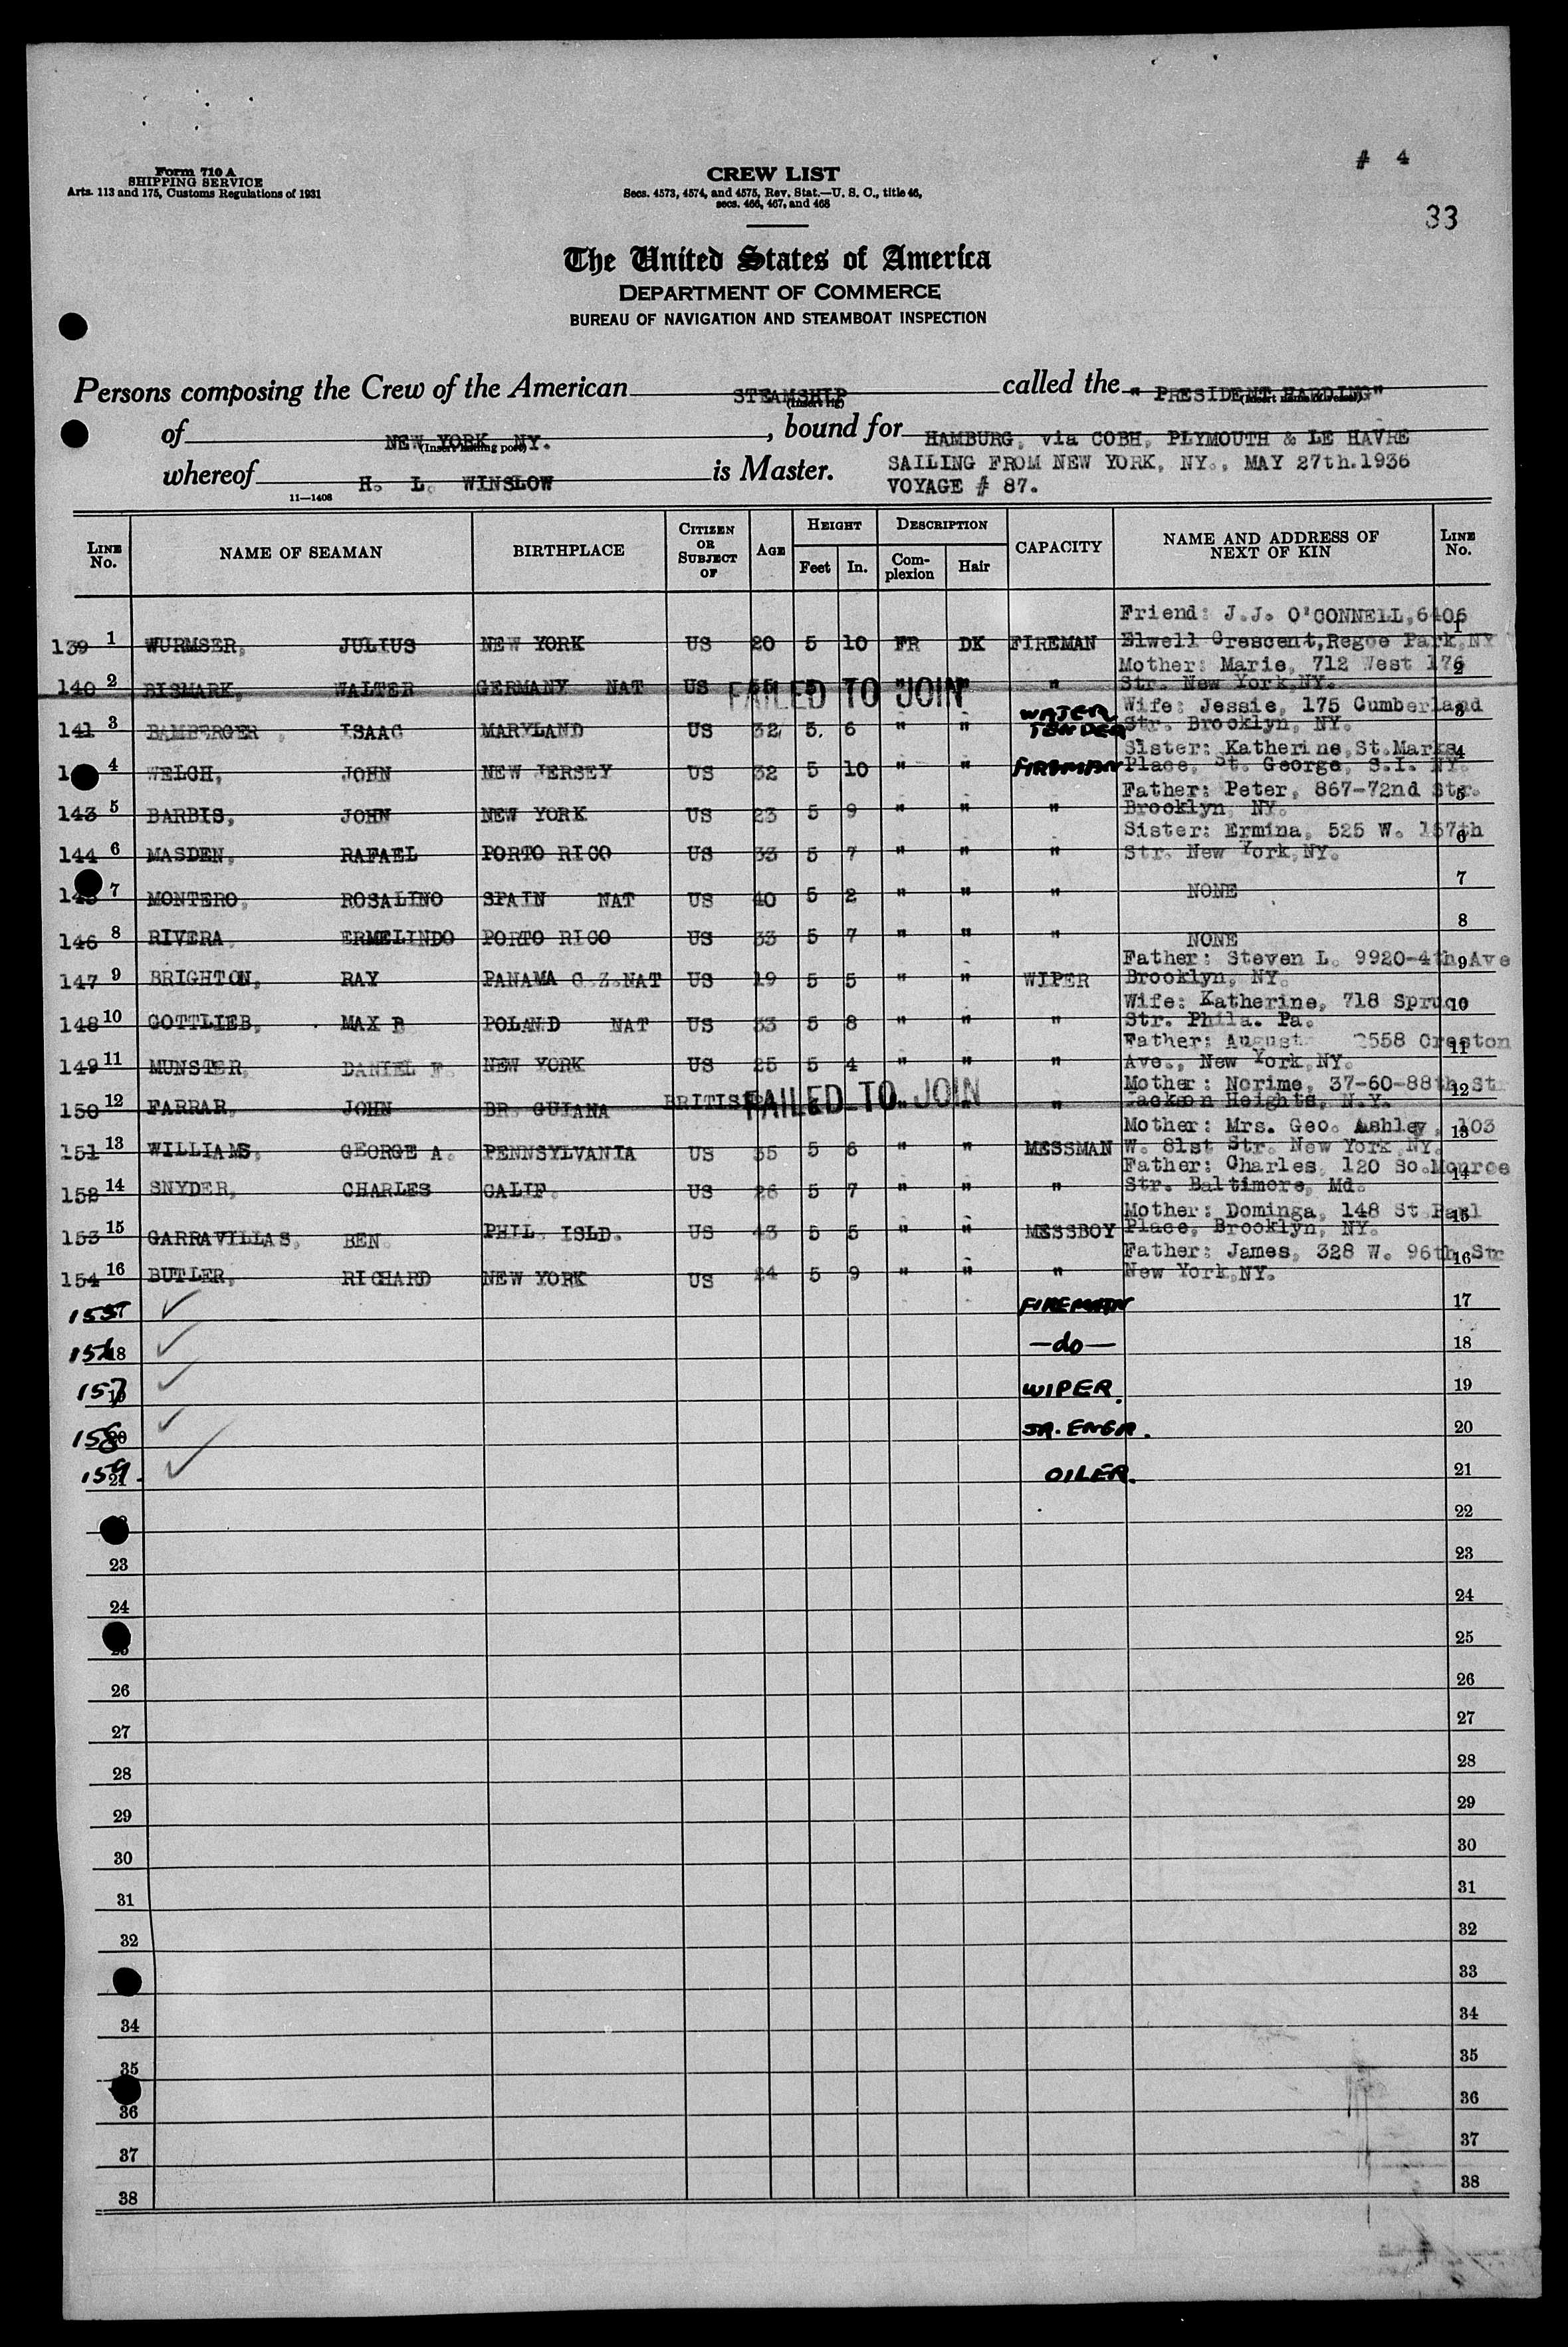 Form 710 A
SHIPPING SERVICE
Arts. 113 and 175, Customs Regulations of 1931
CREW LIST
Secs. 4573, 4574, and 4575, Rev. Stat.—U. S. C., title 46,
secs. 466, 467, and 468
# 4
33
The United States of America
DEPARTMENT OF COMMERCE
BUREAU OF NAVIGATION AND STEAMBOAT INSPECTION
Persons composing the Crew of the American STEAMSHIP called the " PRESIDENT HARDING"
(Insert rig) (Insert name of vessel)
of NEW YORK, NY. , bound for HAMBURG, via COBH, PLYMOUTH & LE HAVRE
(Insert hailing port)
whereof H. L. WINSLOW is Master. SAILING FROM NEW YORK, NY., MAY 27th.1936
11—1408
VOYAGE # 87.
LINE No. NAME OF SEAMAN BIRTHPLACE CITIZEN OR SUBJECT OF AGE HEIGHT Feet In. DESCRIPTION Complexion Hair CAPACITY NAME AND ADDRESS OF NEXT OF KIN LINE No.
Friend: J.J. O'CONNELL,6406
139 1 WURMSER, JULIUS NEW YORK US 20 5 10 FR DK FIREMAN Elwell Crescent,Regoe Park,NY 1
Mother: Marie, 712 West 176
140 2 BISMARK, WALTER GERMANY NAT US FAILED TO JOIN " Str. New York,NY. 2
Wife: Jessie, 175 Cumberland
141 3 BAMBERGER , ISAAC MARYLAND US 32 5. 6 " " WATER TENDER Str. Brooklyn, NY. 3
Sister: Katherine,St.Marks
4 WELCH, JOHN NEW JERSEY US 32 5 10 " " FIREMAN Place, St. George, S.I. NY. 4
Father: Peter, 867-72nd Str.
143 5 BARBIS, JOHN NEW YORK US 23 5 9 " " " Brooklyn, NY. 5
Sister: Ermina, 525 W. 167th
144 6 MASDEN, RAFAEL PORTO RICO US 33 5 7 " " " Str. New York,NY. 6
145 7 MONTERO, ROSALINO SPAIN NAT US 40 5 2 " " " NONE 7
146 8 RIVERA, ERMELINDO PORTO RICO US 33 5 7 " " " NONE 8
Father: Steven L. 9920-4th Ave
147 9 BRIGHTON, RAY PANAMA C.Z.NAT US 19 5 5 " " WIPER Brooklyn, NY. 9
Wife: Katherine, 718 Spruce
148 10 GOTTLIEB, MAX B POLAND NAT US 33 5 8 " " " Str. Phila. Pa. 10
Father: August 2558 Creston
149 11 MUNSTER, DANIEL F. NEW YORK US 25 5 4 " " " Ave., New York,NY. 11
Mother: Norime, 37-60-88th St
150 12 FARRAR, JOHN BR. GUIANA BRITISH FAILED TO JOIN " " Jackson Heights, N.Y. 12
Mother: Mrs. Geo. Ashley, 103
151 13 WILLIAMS, GEORGE A. PENNSYLVANIA US 35 5 6 " " MESSMAN W. 81st Str. New York,NY. 13
Father: Charles, 120 So.Monroe
152 14 SNYDER, CHARLES CALIF. US 26 5 7 " " " Str. Baltimore, Md. 14
Mother: Dominga, 148 St Paul
153 15 GARRAVILLAS, BEN PHIL. ISLD. US 43 5 5 " " MESSBOY Place, Brooklyn, NY. 15
Father: James, 328 W. 96th Str
154 16 BUTLER, RICHARD NEW YORK US 24 5 9 " " " New York,NY. 16
155 17 ✓ FIREMAN 17
156 18 ✓ —do— 18
157 19 ✓ WIPER. 19
158 20 ✓ JR. ENGR. 20
159. 21 ✓ OILER. 21
22
23 23
24 24
25 25
26 26
27 27
28 28
29 29
30 30
31 31
32 32
33
34 34
35 35
36 36
37 37
38 38